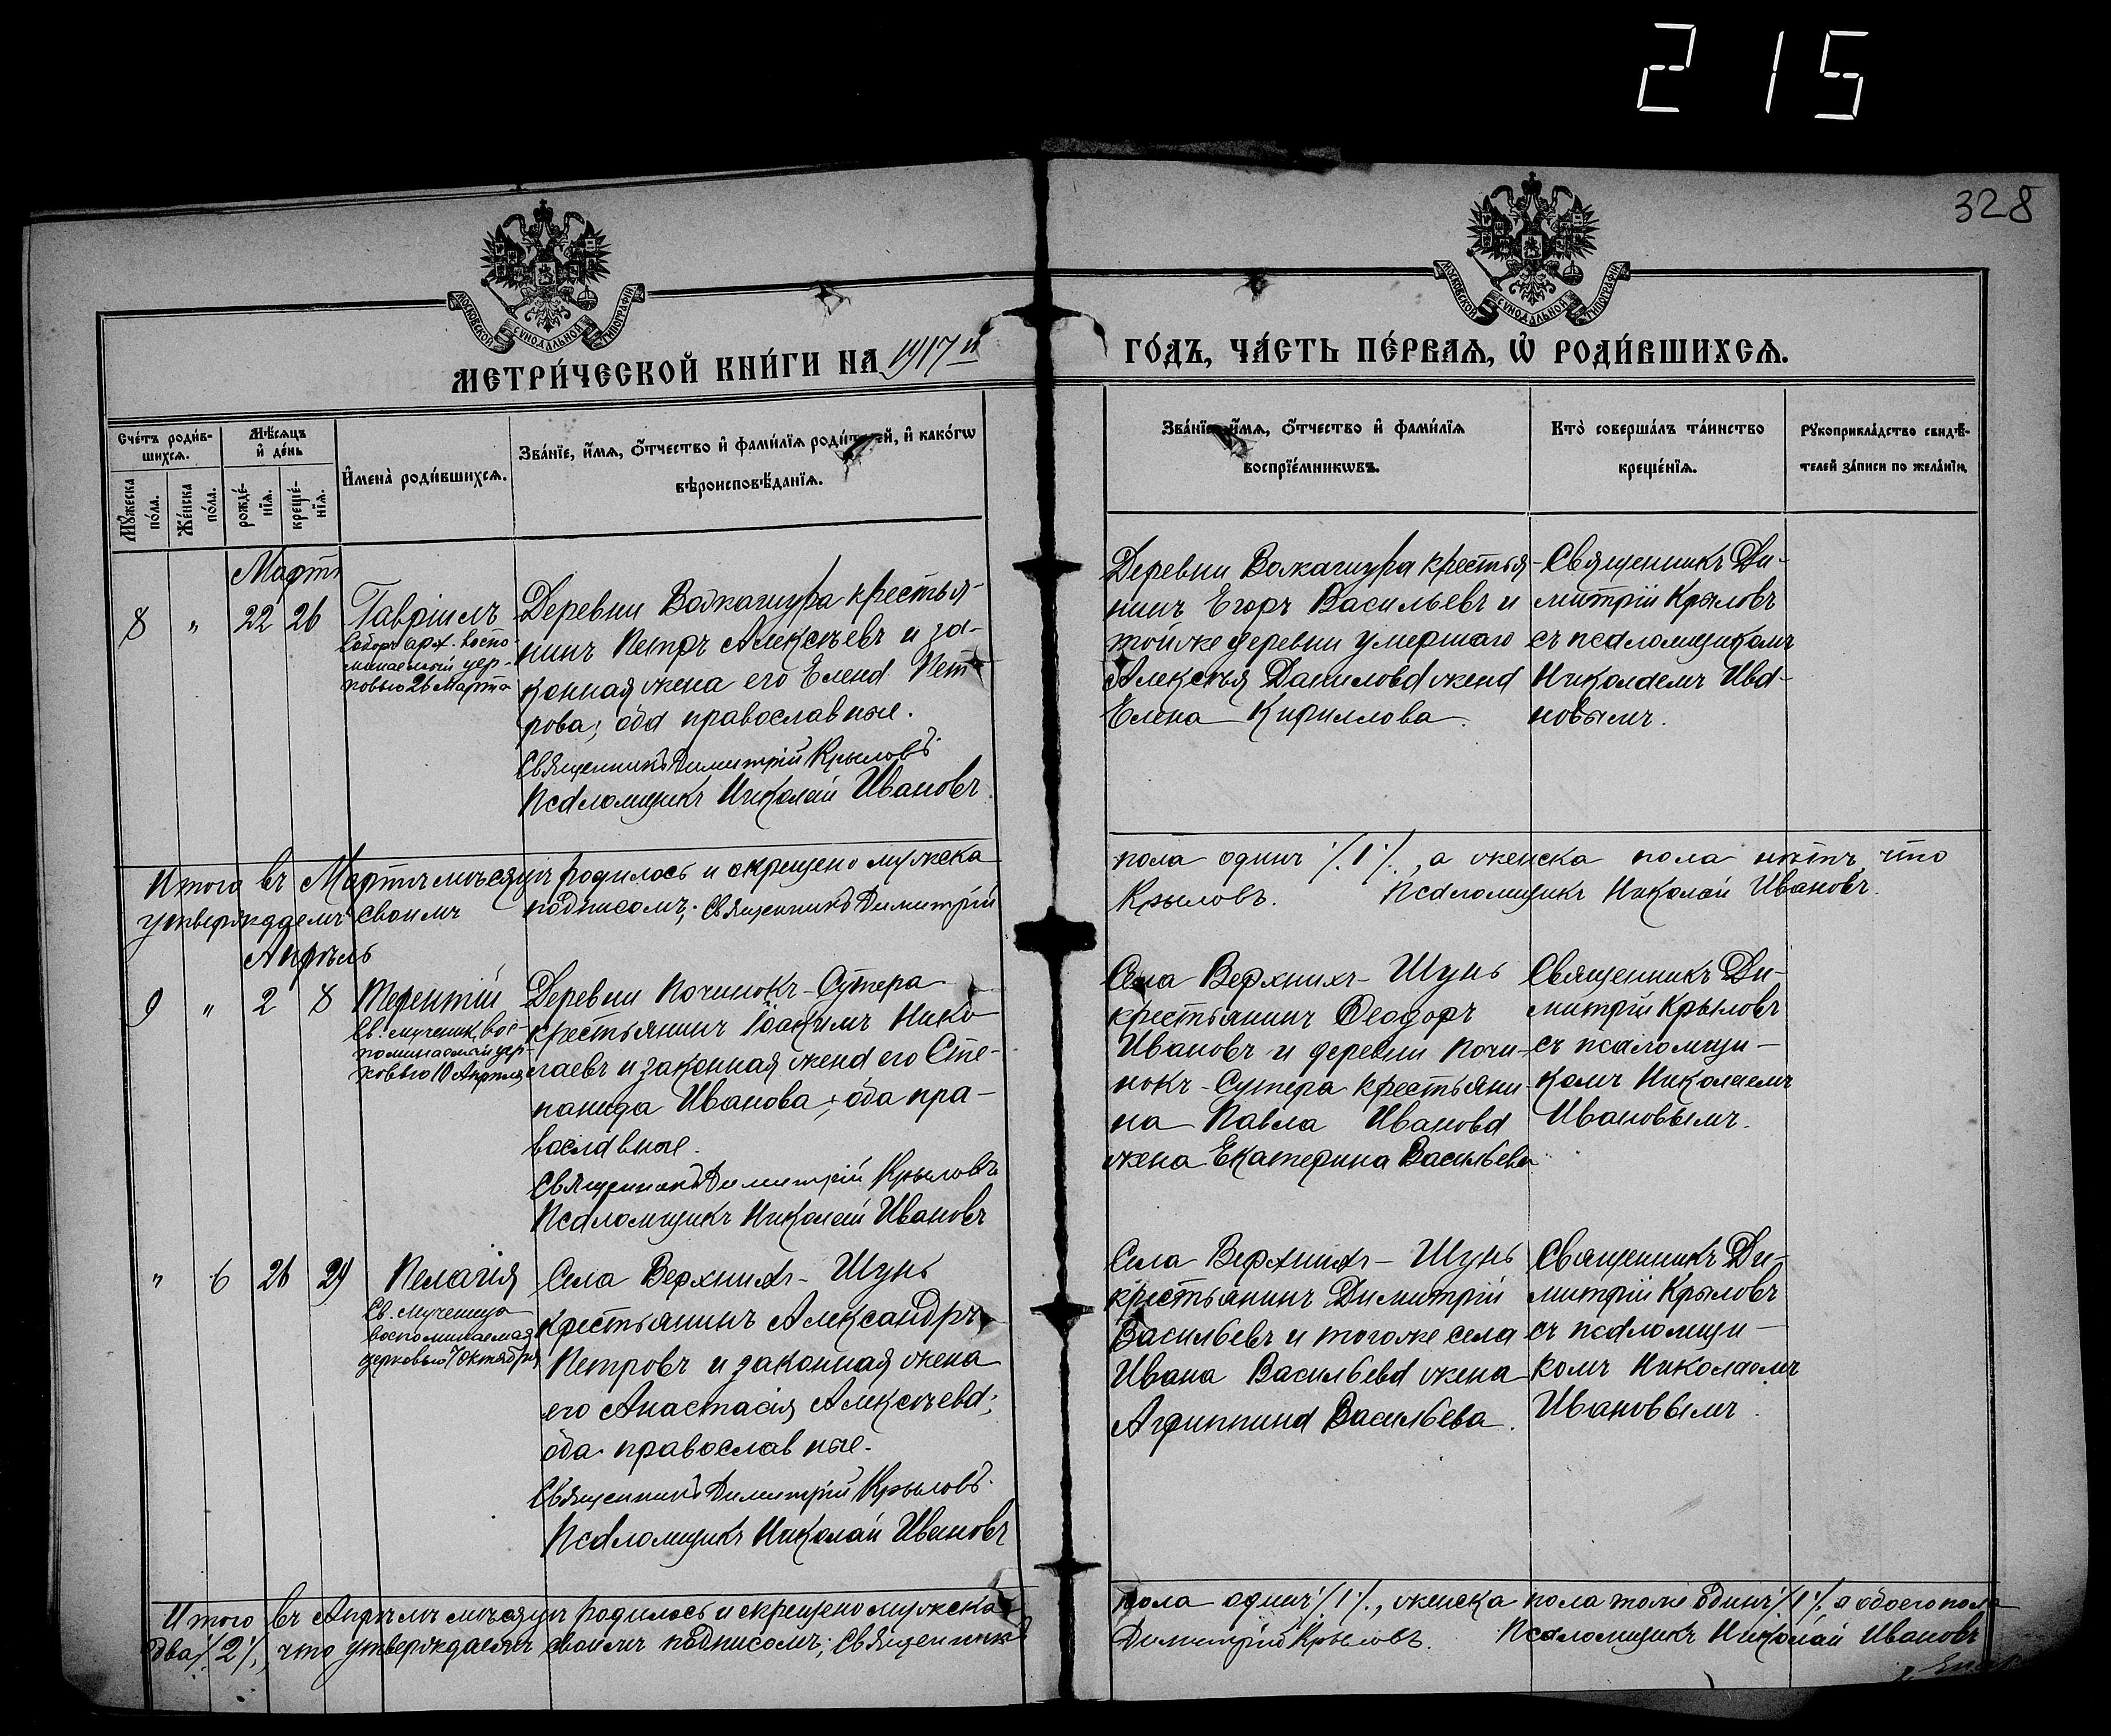 215
328
МОСКОВСКОЙ СУНОДАЛЬНОЙ ТИПОГРАФІИ
МОСКОВСКОЙ СУНОДАЛЬНОЙ ТИПОГРАФІИ
МЕТРИ́ЧЕСКОЙ КНИ́ГИ НА 1917 й
ГО́ДЪ, ЧА́СТЬ ПЕ́РВАѦ, Ѡ҆ РОДИ́ВШИХСѦ.
Сче́тъ роди́в-
шихсѧ.
Мꙋ́жеска по́ла.
Же́нска по́ла.
Мѣ́сѧцъ и҆ де́нь
рожде́-
нїѧ.
креще́-
нїѧ.
И҆мена̀ роди́вшихсѧ.
Зва́нїе, и҆́мѧ, о҆́тчество и҆ фами́лїѧ роди́телей, и҆ како́гѡ
вѣроисповѣ́данїѧ.
Зва́нїе, и҆́мѧ, о҆́тчество и҆ фами́лїѧ
воспрїе́мникѡвъ.
Кто̀ соверша́лъ та́инство
креще́нїѧ.
Рꙋкоприкла́дство свидѣ́-
телей за́писи по жела́нїю.
Мартъ
8 " 22 26 Гавріилъ
Соборъ арх. воспо-
минаемый цер-
ковью 26 Марта
Деревни Волкашура крестья-
нинъ Петръ Алексѣевъ и за-
конная жена его Елена Пет-
рова; оба православные.
Священникъ Димитрій Крыловъ.
Псаломщикъ Николай Ивановъ
Деревни Волкашура крестья-
нинъ Егоръ Васильевъ и
той же деревни умершаго
Алексѣя Данилова жена
Елена Кириллова.
Священникъ Ди-
митрій Крыловъ
съ псаломщикомъ
Николаемъ Ива-
новымъ.
Итого въ Мартѣ мѣсяцѣ родилось и окрещено мужеска
пола одинъ /.1./., а женска пола нѣтъ, что
утверждаемъ своимъ подписомъ; Священникъ Димитрій
Крыловъ. Псаломщикъ Николай Ивановъ.
Апрѣль
9 " 2 8 Терентій
Св. мученик, вос-
поминаемый цер-
ковью 10 Апрѣля
Деревни Починокъ-Сутера
крестьянинъ Іоакимъ Нико-
лаевъ и законная жена его Сте-
панида Иванова; оба пра-
вославные.
Священникъ Димитрій Крыловъ
Псаломщикъ Николай Ивановъ
Села Верхнихъ-Шунь
крестьянинъ Ѳеодоръ
Ивановъ и деревни Почи-
нокъ-Сутера крестьяни-
на Павла Иванова
жена Екатерина Васильева
Священникъ Ди-
митрій Крыловъ
съ псаломщи-
комъ Николаемъ
Ивановымъ.
" 6 26 29 Пелагія
Св. мученица
воспоминаемая
церковью 7 Октября
Села Верхнихъ-Шунь
крестьянинъ Александръ
Петровъ и законная жена
его Анастасія Алексѣева;
оба православные.
Священникъ Димитрій Крыловъ.
Псаломщикъ Николай Ивановъ
Села Верхнихъ-Шунь
крестьянинъ Димитрій
Васильевъ и тогоже села
Ивана Васильева жена
Агриппина Васильева.
Священникъ Ди-
митрій Крыловъ
съ псаломщи-
комъ Николаемъ
Ивановымъ.
Итого въ Апрѣлѣ мѣсяцѣ родилось и окрещено мужеска
пола одинъ /.1./., женска пола тоже одинъ /.1./. а обоего пола
два /.2./., что утверждаемъ своимъ подписомъ; Священникъ
Димитрій Крыловъ. Псаломщикъ Николай Ивановъ